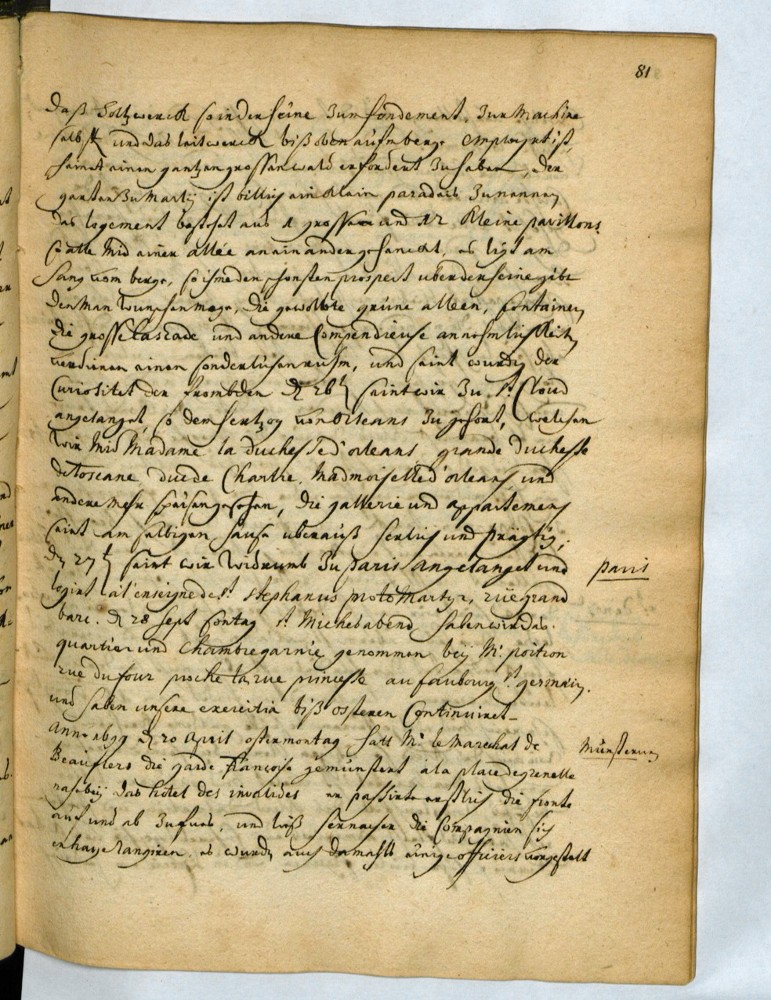 81
daß holtzwerck so in der seine zum fondement, zur Machine
selbst und das leitwerck biß oben aufm berge employrt ist,
hatt einen gantzen grossen wald erfordert zu haben, der
garten zu Marly ist billig ein klein paradeis zu nennen
das logement bestehet aus 1 grossen und 12 kleine pavillons
so alle mid einer allée an einander gehenckt, es ligt am
hang vom berge, so ihme den schönsten prospect uber der seine gibt
den Man wunschen mage, die gewolbte grüne alleen, fontainen
die grosse cascade und andere Compendieuse annehmlichkeit
verdienen einen sonderlichen ruhm, und seint wurdig der
Curiositet der frembden d. 26t seint wir zu St. Cloud
angelanget, so dem hertzog von Orleans zu gehört, welchen
wir mid Madame la duchesse d'orleans grande duchesse
de toscane duc de Chartre, Madmoiselle d'orleans und
andere mehr speisen gesehen, die gallerie und appartemens
seint am selbigen hause uberauß herlich und prägtig,
d. 27t seint wir widrumb zu paris angelanget und
paris
logirt à l'enseigne de St. stephanus protoMartyr, rüe grand
. d. 28 Sept sontag St. Michels abend haben wir das
quartier und Chambre garnie genommen bey Mr. poition
rue du four proche la rue princesse au faubourg St. germain.
und haben unsere exercitia biß osteren Continuiret
Anno 1699 d. 20 April ostermontag hatt Mr. le Marechal de
Munsterung
Beauflers die garde françoise gemünstert à la place de grenelle
nahe bey das hotel des invalides er passirte erstlich die fronte
auf und ab zu fues, und ließ hernacher die Compagnien sich
en haye rangiren. es wurden auch damahls einige officiers vorgestelt